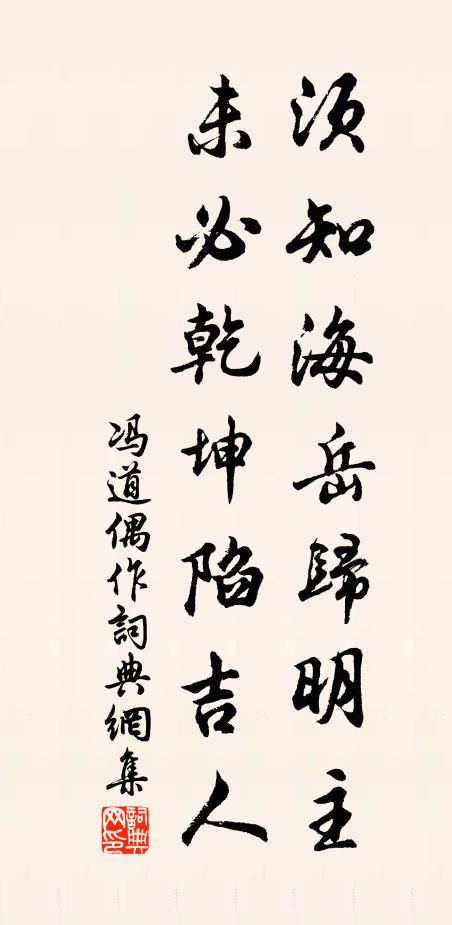 须知海岳歸明主
未必乾坤陷吉人
冯道偶作詞典網集
詞典
网印